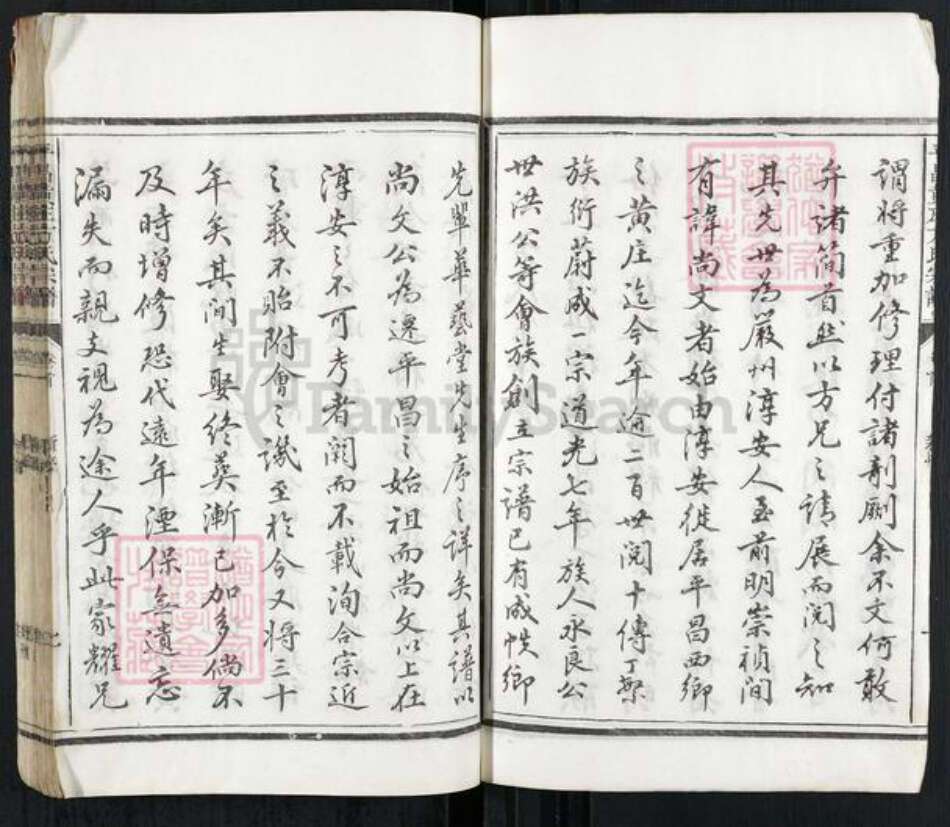 謂將重加修理付諸剞劂余不文何敢
弁諸簡首然以方兄之請展而閱之知
其先世為嚴州淳安人至前明崇禎間
有諱尚文者始由淳安徙居平昌西鄉
之黃庄迄今年逾二百世閱十傳丁繁
族衍蔚成一宗道光七年族人永良公
世洪公等會族創立宗譜已有成帙鄉
先輩華藝堂先生序之詳矣其譜以
尚文公為遷平昌之始祖而尚文以上在
淳安之不可考者闕而不載洵合宗近
之義不貽附會之譏至於今又將三十
年矣其間生娶終葬漸已加多倘不
及時增修恐代遠年湮保無遺忘
漏失而親支視為途人乎此家耀兄
FamilySearch